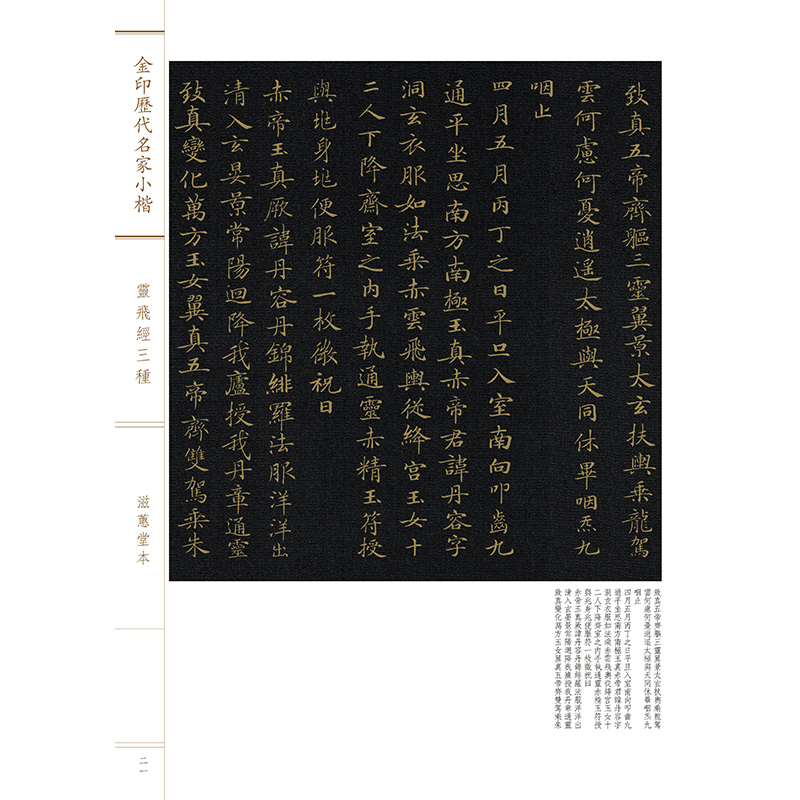 致真五帝齊軀三靈翼景太玄扶輿乘龍駕
雲何慮何憂逍遙太極與天同休畢咽炁九
咽止
四月五月丙丁之日平旦入室南向叩齒九
通平坐思南方南極玉真赤帝君諱丹容字
洞玄衣服如法乘赤雲飛輿從絳宮玉女十
二人下降齋室之內手執通靈赤精玉符授
與兆身兆便服符一枚微祝曰
赤帝玉真厥諱丹容丹錦緋羅法服洋洋出
清入玄晏景常陽迴降我廬授我丹章通靈
致真變化萬方玉女翼真五帝齊雙駕乘朱
致真五帝齊軀三靈翼景太玄扶輿乘龍駕
雲何慮何憂逍遙太極與天同休畢咽炁九
咽止
四月五月丙丁之日平旦入室南向叩齒九
通平坐思南方南極玉真赤帝君諱丹容字
洞玄衣服如法乘赤雲飛輿從絳宮玉女十
二人下降齋室之內手執通靈赤精玉符授
與兆身兆便服符一枚微祝曰
赤帝玉真厥諱丹容丹錦緋羅法服洋洋出
清入玄晏景常陽迴降我廬授我丹章通靈
致真變化萬方玉女翼真五帝齊雙駕乘朱
金印歷代名家小楷
靈飛經三種
滋蕙堂本
二一